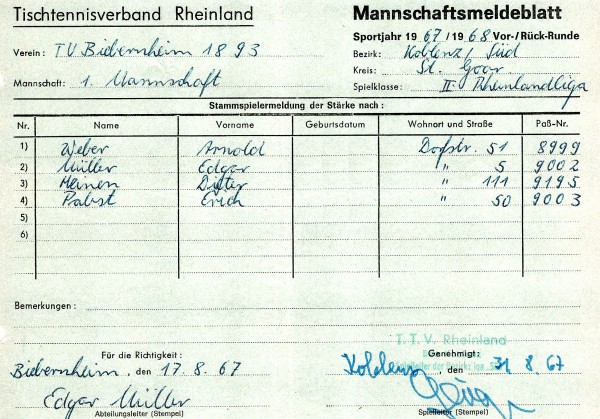 Tischtennisverband Rheinland
Mannschaftsmeldeblatt
Sportjahr 1967/1968 Vor-/Rück-Runde
Verein: TV Biebernheim 1893
Bezirk: Koblenz/Süd
Kreis: St. Goar
Mannschaft: 1. Mannschaft
Spielklasse: II. Rheinlandliga
Stammspielermeldung der Stärke nach:
Nr. Name Vorname Geburtsdatum Wohnort und Straße Paß-Nr.
1) Weber Arnold Dorfstr. 51 8999
2) Müller Edgar " 5 9002
3) Heinen Dieter " 111 9195
4) Pabst Erich " 50 9003
5)
6)
Bemerkungen:
T. T. V. Rheinland
Für die Richtigkeit:
Genehmigt:
Biebernheim, den 17.8.67
Koblenz, den 31.8.67
Edgar Müller
Abteilungsleiter (Stempel)
Spielleiter (Stempel)